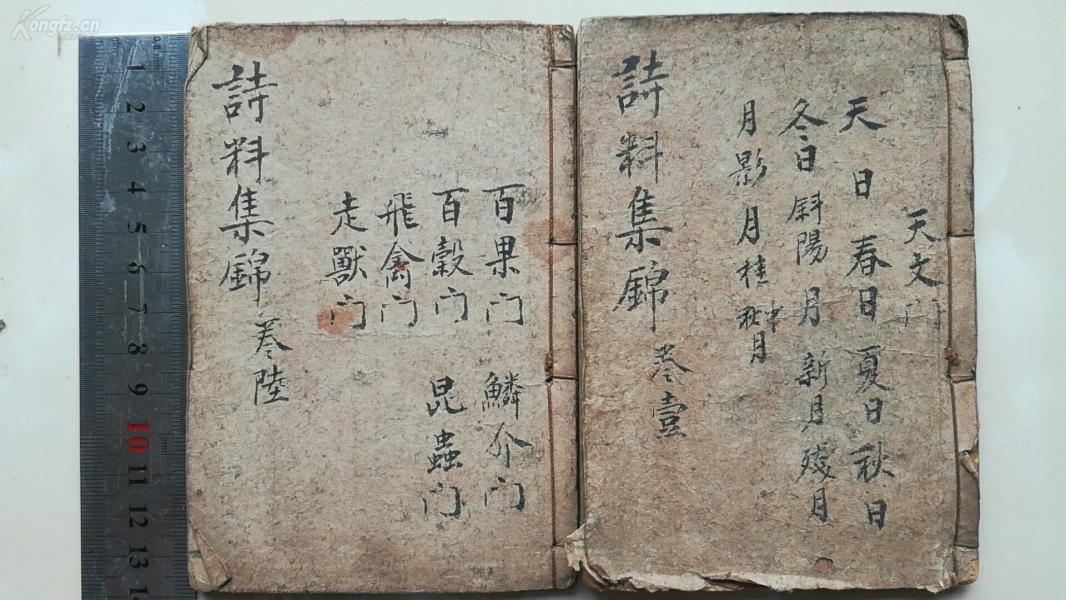 Kongfz.cn
天文门
天 日 春日 夏日 秋日
冬日 斜陽 月 新月 殘月
月影 月桂 中秋月
詩料集錦 卷壹
百果门 鱗介门
百穀门 昆蟲门
飛禽门
走獸门
詩料集錦 卷陸
1
2
3
4
5
6
7
8
9
10
11
12
13